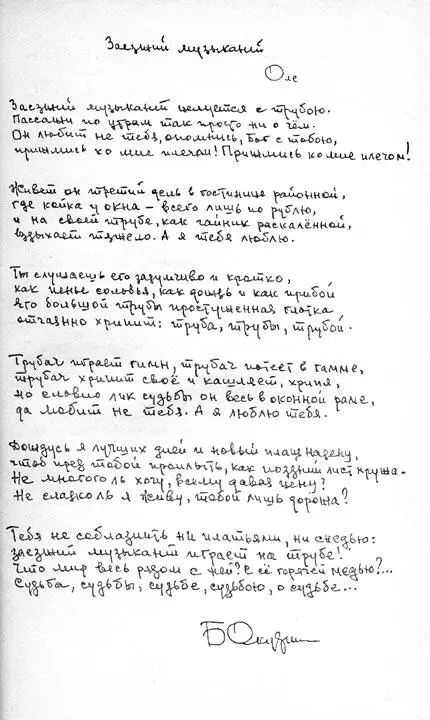 Заезжий музыкант
Оле
Заезжий музыкант целуется с трубою.
Пассажи по утрам так просто ни о чём.
Он любит не тебя, опомнись, Бог с тобою,
прижмись ко мне плечом! Прижмись ко мне плечом!
Живёт он третий день в гостинице районной,
где койка у окна – всего лишь по рублю,
и на своей трубе, как чайник раскалённой,
вздыхает тяжело. А я тебя люблю.
Ты слушаешь его задумчиво и кротко,
как пенье соловья, как дождь и как прибой
Его большой трубы простуженная глотка
отчаянно хрипит: труба, трубы, трубой.
Трубач играет гимн, трубач потеет в гамме,
трубач хрипит своё и кашляет, хрипя,
но словно лик судьбы он весь в оконной раме,
да любит не тебя. А я люблю тебя.
Дождусь я лучших дней и новый плащ надену,
чтоб пред тобой проплыть, как поздний лист кружа.
Не много ль хочу, всему давая цену?
Не сладко ль я живу, тобой лишь дорожа?
Тебя не соблазнить ни платьями, ни снедью:
заезжий музыкант играет на трубе!
Что мир весь рядом с ней? С её горячей медью?...
Судьба, судьбы, судьбе, судьбою, о судьбе...
Б Окуджава